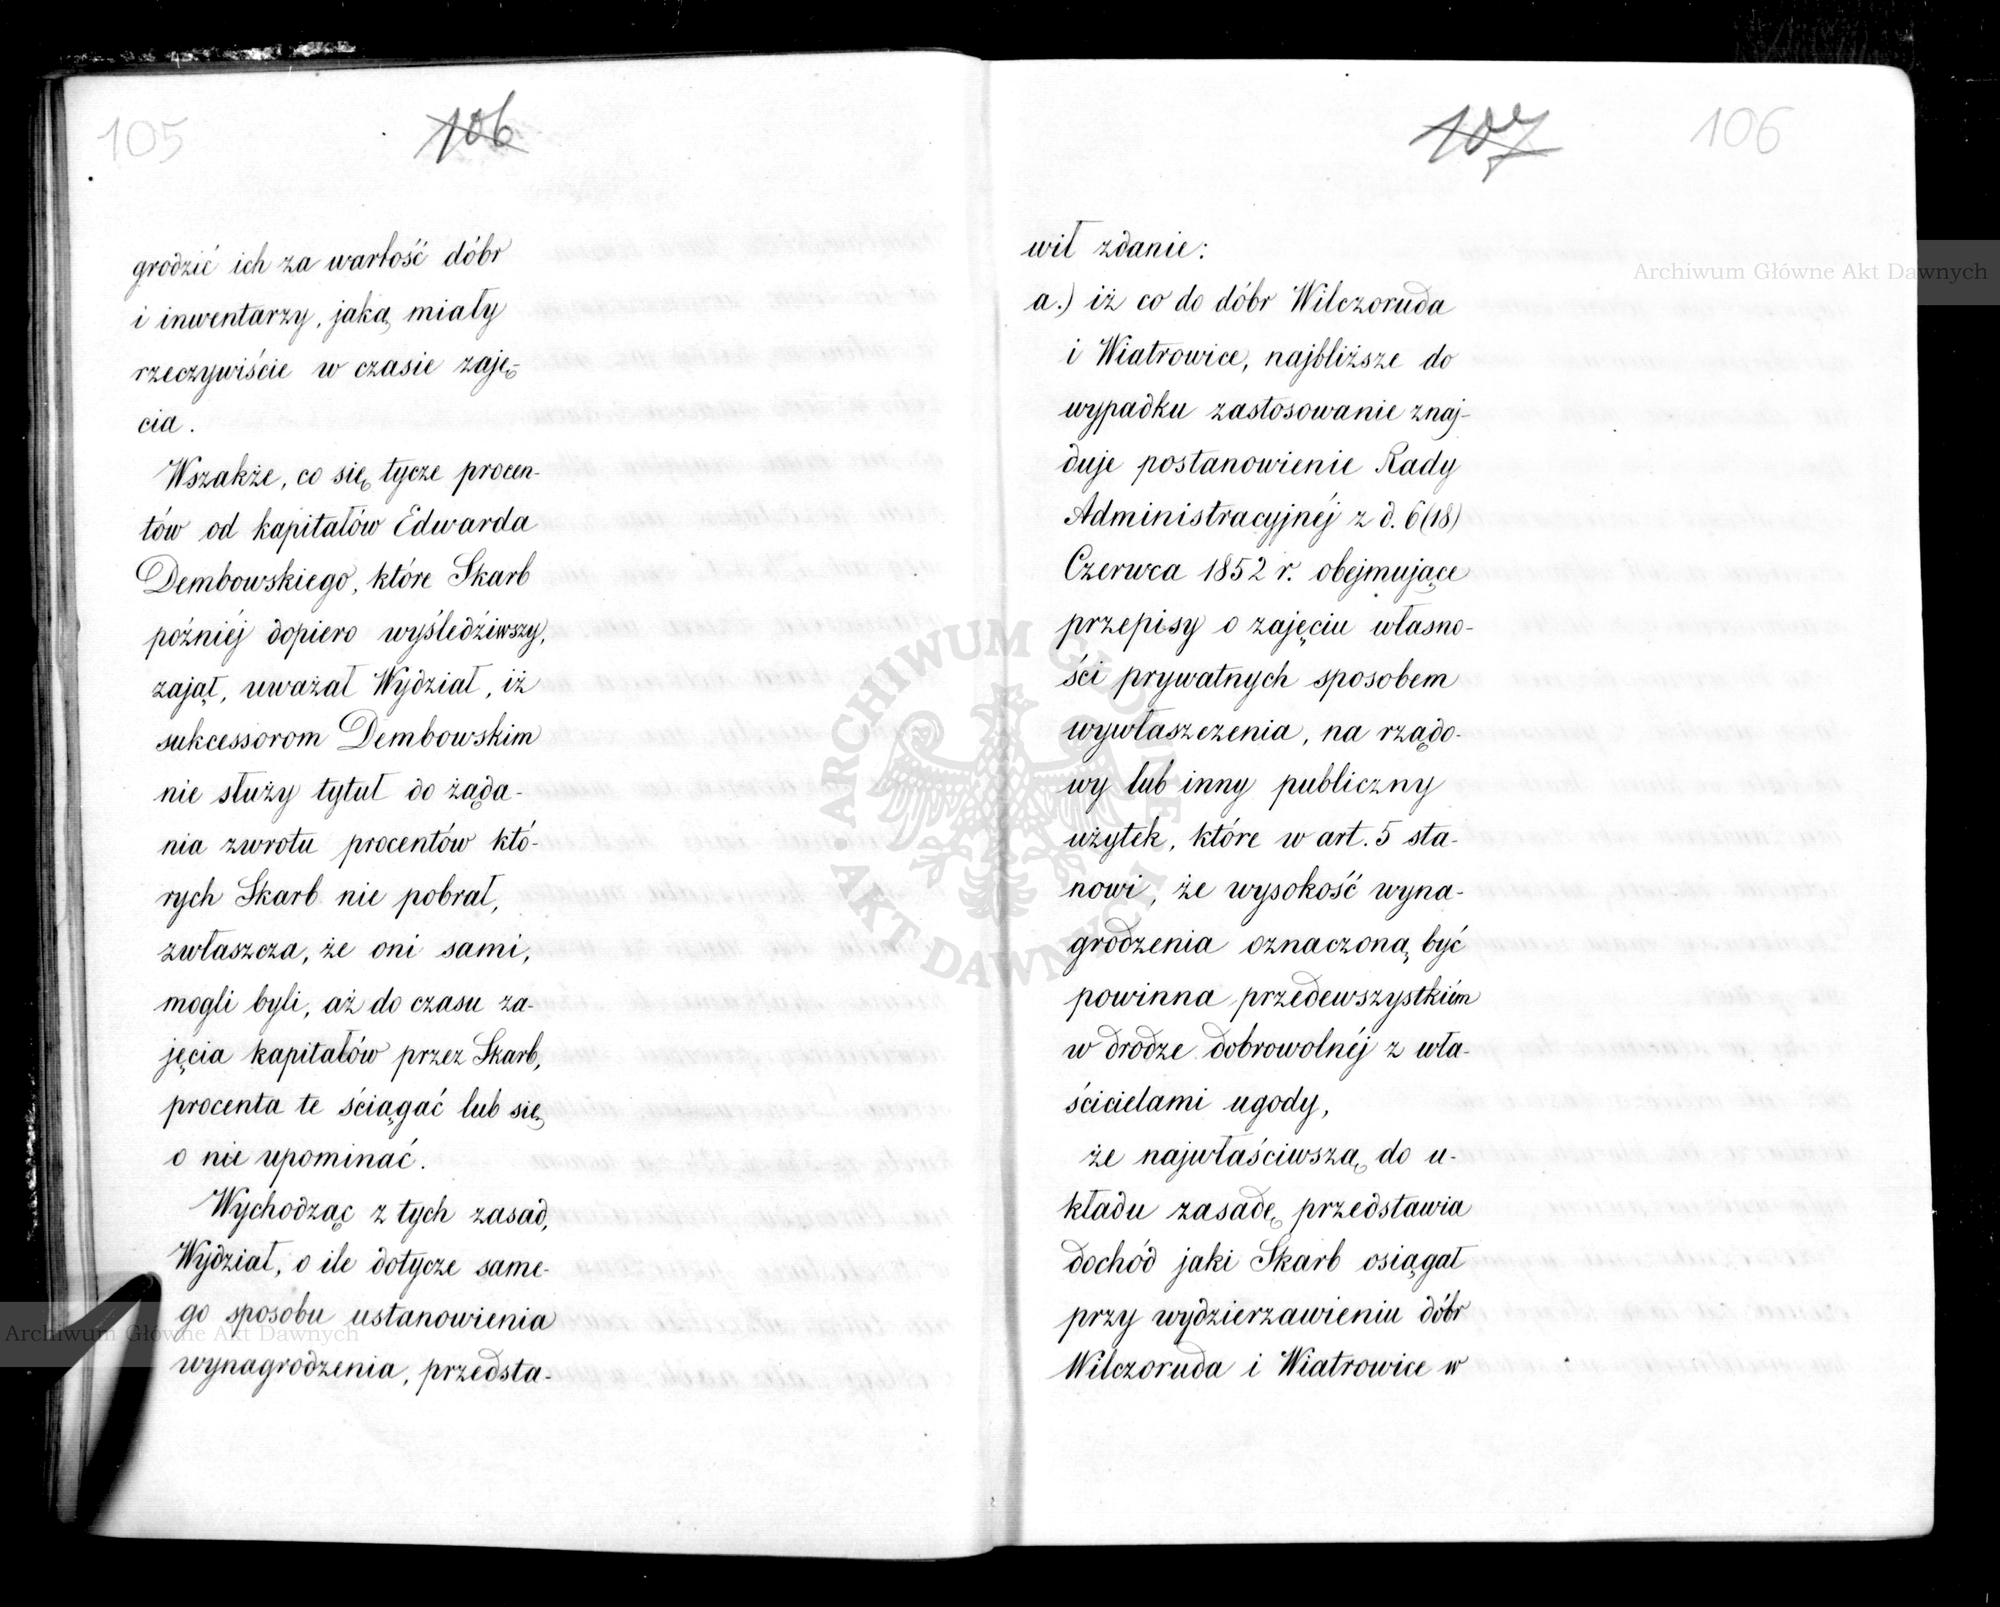 105
106
grodzić ich za wartość dóbr
i inwentarzy, jaką miały
rzeczywiście w czasie zaję-
cia.
Wszakże, co się tycze procen-
tów od kapitałów Edwarda
Dembowskiego, które Skarb
poźniéj dopiero wyśledziwszy,
zajął, uważał Wydział, iż
sukcessorom Dembowskim
nie służy tytuł do żąda-
nia zwrotu procentów któ-
rych Skarb nie pobrał,
zwłaszcza, że oni sami,
mogli byli, aż do czasu za-
jęcia kapitałów przez Skarb,
procenta te ściągać lub się
o nie upominać.
Wychodząc z tych zasad,
Wydział, o ile dotycze same-
go sposobu ustanowienia
wynagrodzenia, przedsta-
107
106
wił zdanie:
a.) iż co do dóbr Wilczoruda
i Wiatrowice, najbliższe do
wypadku zastosowanie znaj-
duje postanowienie Rady
Administracyjnéj z d. 6(18)
Czerwca 1852 r. obejmujące
przepisy o zajęciu własno-
ści prywatnych sposobem
wywłaszczenia, na rządo-
wy lub inny publiczny
użytek, które w art. 5 sta-
nowi, że wysokość wyna-
grodzenia oznaczoną być
powinna przedewszystkiém
w drodze dobrowolnéj z wła-
ścicielami ugody,
że najwłaściwszą do u-
kładu zasadę przedstawia
dochód jaki Skarb osiągał
przy wydzierzawieniu dóbr
Wilczoruda i Wiatrowice w
Archiwum Główne Akt Dawnych
Archiwum Główne Akt Dawnych
ARCHIWUM GŁÓWNE
AKT DAWNYCH